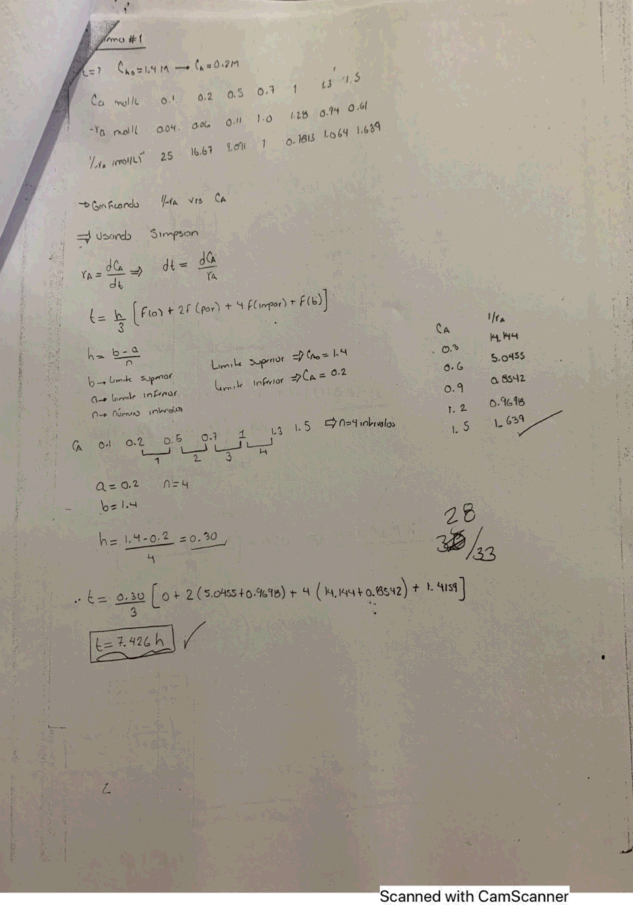 ma #1
t=? CA0=1.4 M → CA=0.2M
CA mol/L 0.1 0.2 0.5 0.7 1 1.3 1.5
-ra mol/L 0.04 0.06 0.11 1.0 1.28 0.94 0.61
1/-ra (mol/L)⁻¹ 25 16.67 9.091 1 0.7813 1.064 1.639
→ Graficando 1/-rA vrs CA
⇒ Usando Simpson
rA = dCA/dt ⇒ dt = dCA/rA
t = h/3 [F(o) + 2F(par) + 4F(impar) + F(b)]
h = b-a/n
b → limite superior
a → limite inferior
n → número intervalos
Limite superior ⇒ CA0 = 1.4
Limite inferior ⇒ CA = 0.2
CA 1/rA
0.3 14.144
0.6 5.0455
0.9 0.8542
1.2 0.9698
1.5 1.639
CA 0.1 0.2 0.5 0.7 1 1.3 1.5 ⇒ n=4 intervalos
1 2 3 4
a = 0.2 n=4
b = 1.4
h = 1.4-0.2/4 = 0.30
28
/33
∴ t = 0.30/3 [0 + 2(5.0455+0.9698) + 4(14.144+0.8542) + 1.4159]
t = 7.426 h
Scanned with CamScanner